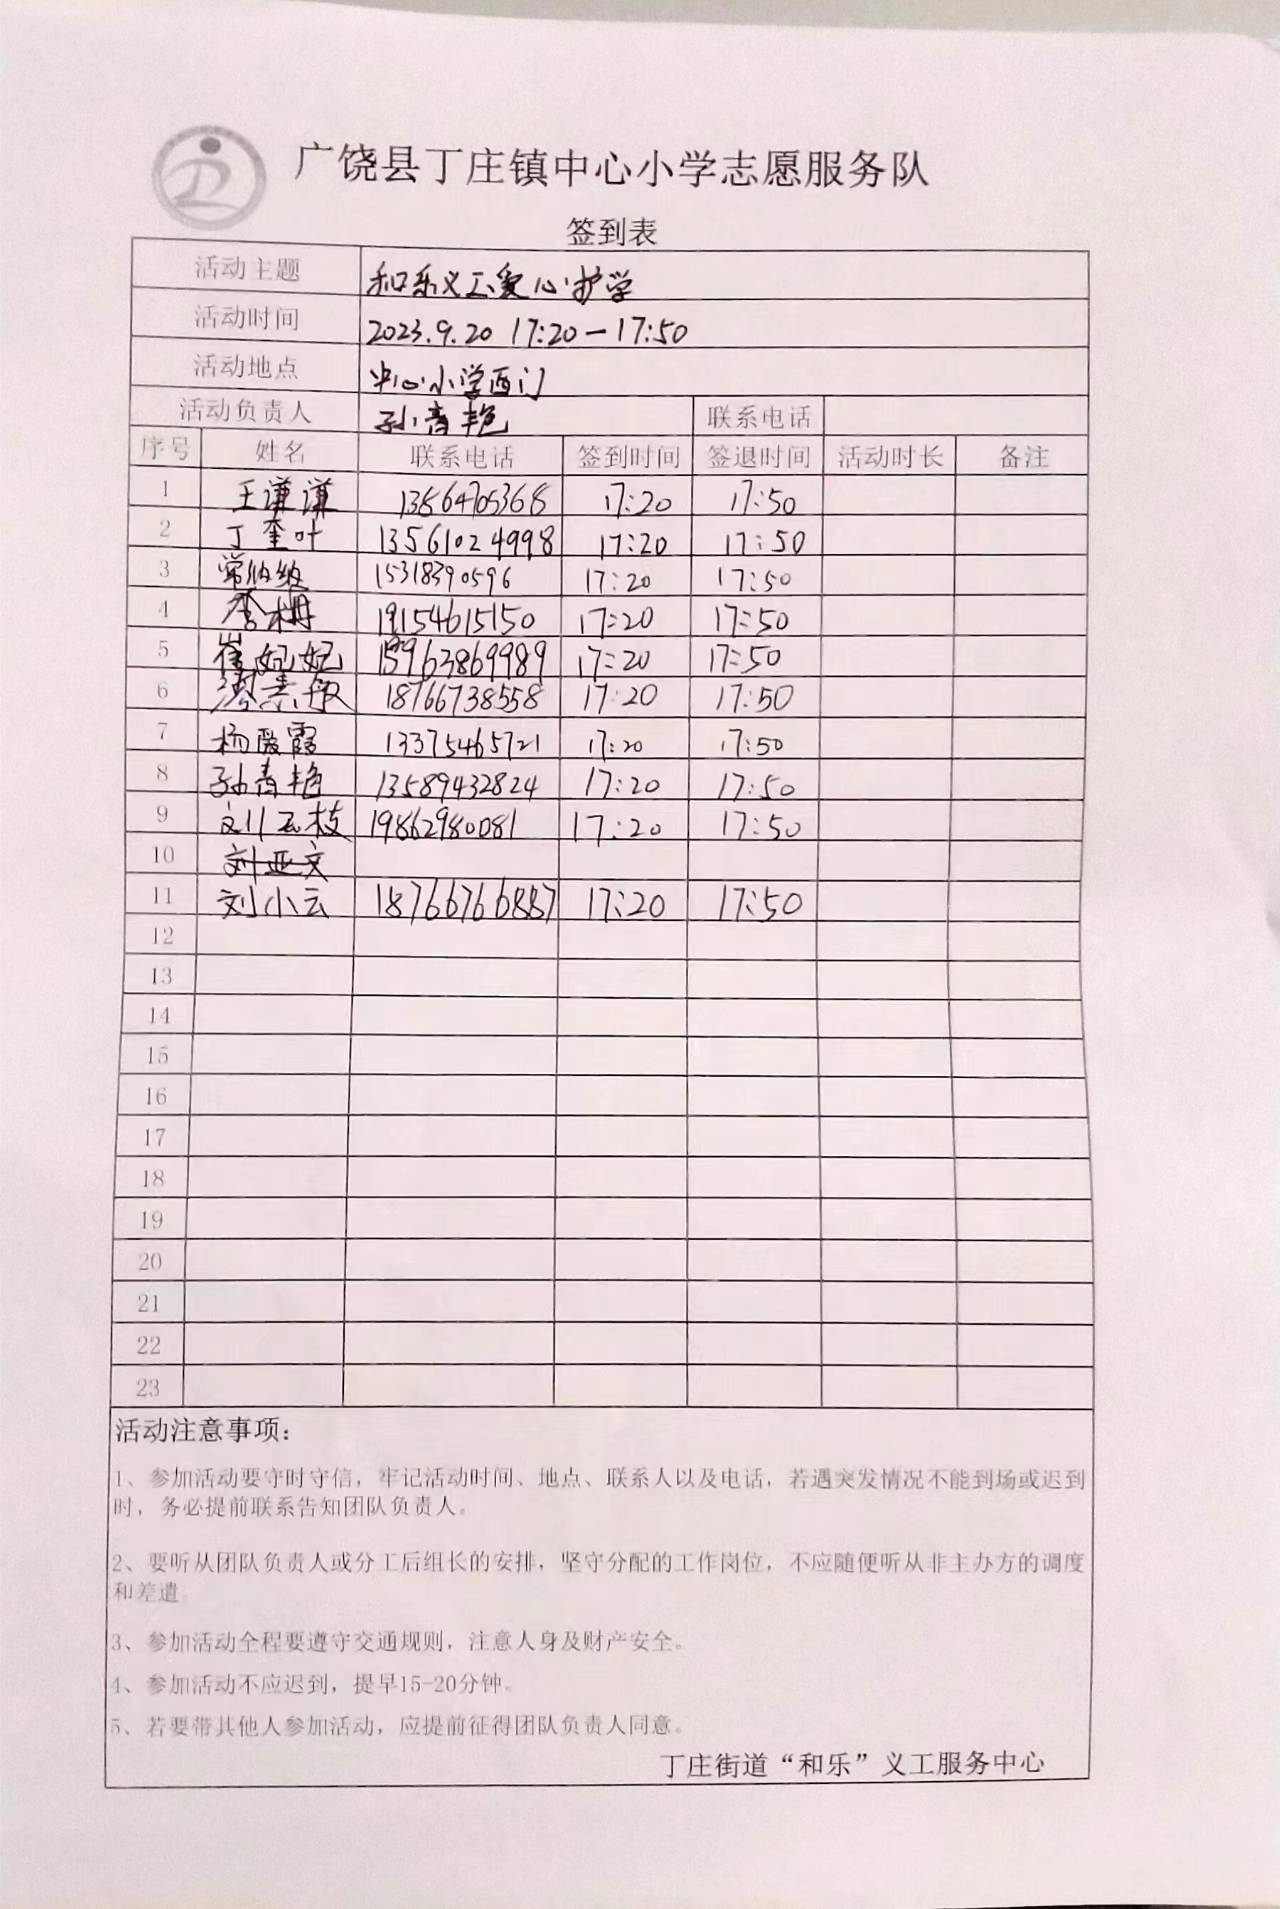 广饶县丁庄镇中心小学志愿服务队
签到表
活动主题 和乐义工爱心护学
活动时间 2023.9.20 17:20—17:50
活动地点 中心小学西门
活动负责人 孙青艳 联系电话
序号 姓名 联系电话 签到时间 签退时间 活动时长 备注
1 王谦谦 13864705368 17:20 17:50
2 丁奎叶 13561024998 17:20 17:50
3 常 15318390596 17:20 17:50
4 李栂 19154615150 17:20 17:50
5 崔妃妃 15963869989 17:20 17:50
6 18766738558 17:20 17:50
7 杨爱霞 13375465721 17:20 17:50
8 孙青艳 13589432824 17:20 17:50
9 刘玉枝 19862980081 17:20 17:50
10 刘亚文
11 刘小云 18766766887 17:20 17:50
12
13
14
15
16
17
18
19
20
21
22
23
活动注意事项：
1、参加活动要守时守信，牢记活动时间、地点、联系人以及电话，若遇突发情况不能到场或迟到
时，务必提前联系告知团队负责人。
2、要听从团队负责人或分工后组长的安排，坚守分配的工作岗位，不应随便听从非主办方的调度
和差遣。
3、参加活动全程要遵守交通规则，注意人身及财产安全。
4、参加活动不应迟到，提早15-20分钟。
5、若要带其他人参加活动，应提前征得团队负责人同意。
丁庄街道“和乐”义工服务中心